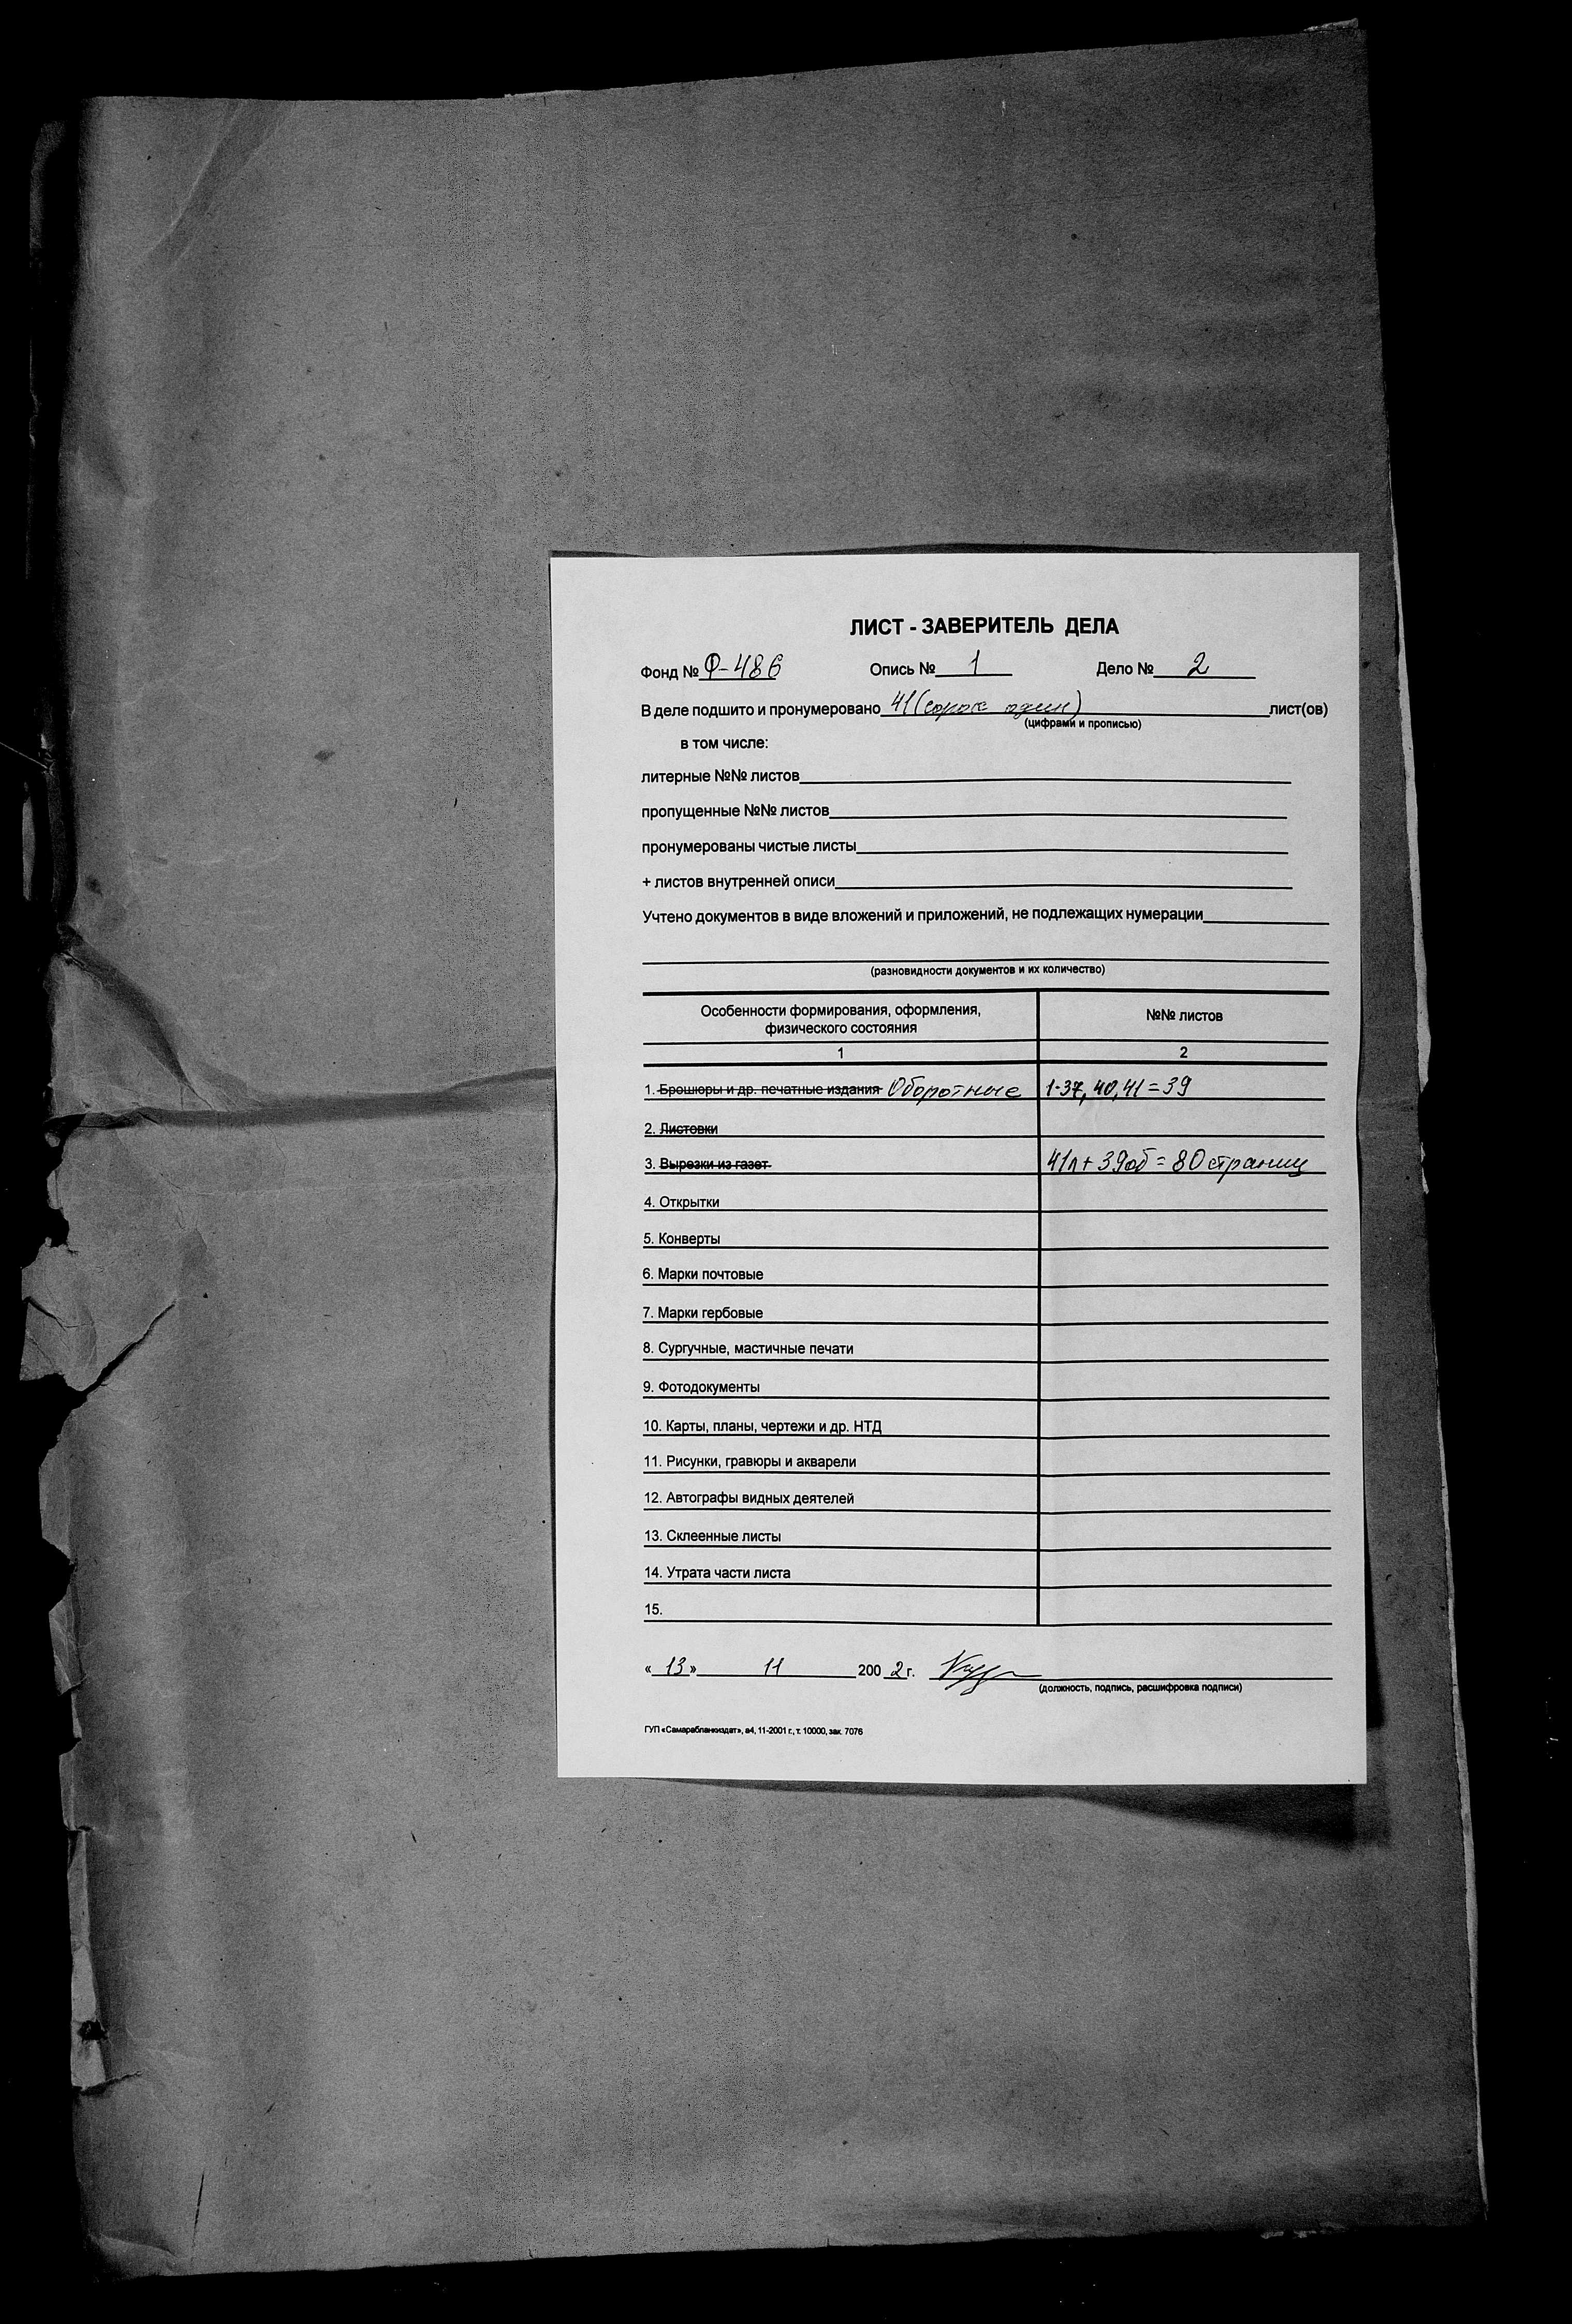 ЛИСТ - ЗАВЕРИТЕЛЬ ДЕЛА
Фонд № Ф-486 Опись № 1 Дело № 2
В деле подшито и пронумеровано 41 (сорок один) лист(ов)
(цифрами и прописью)
в том числе:
литерные №№ листов
пропущенные №№ листов
пронумерованы чистые листы
+ листов внутренней описи
Учтено документов в виде вложений и приложений, не подлежащих нумерации
(разновидности документов и их количество)
Особенности формирования, оформления, №№ листов
физического состояния
1 2
1. Брошюры и др. печатные издания Оборотные 1-37, 40, 41 = 39
2. Листовки
3. Вырезки из газет 41л + 39об = 80 страниц
4. Открытки
5. Конверты
6. Марки почтовые
7. Марки гербовые
8. Сургучные, мастичные печати
9. Фотодокументы
10. Карты, планы, чертежи и др. НТД
11. Рисунки, гравюры и акварели
12. Автографы видных деятелей
13. Склеенные листы
14. Утрата части листа
15.
« 13 » 11 200 2 г.
(должность, подпись, расшифровка подписи)
ГУП «Самарабланкиздат», а4, 11-2001 г., т. 10000, зак. 7076